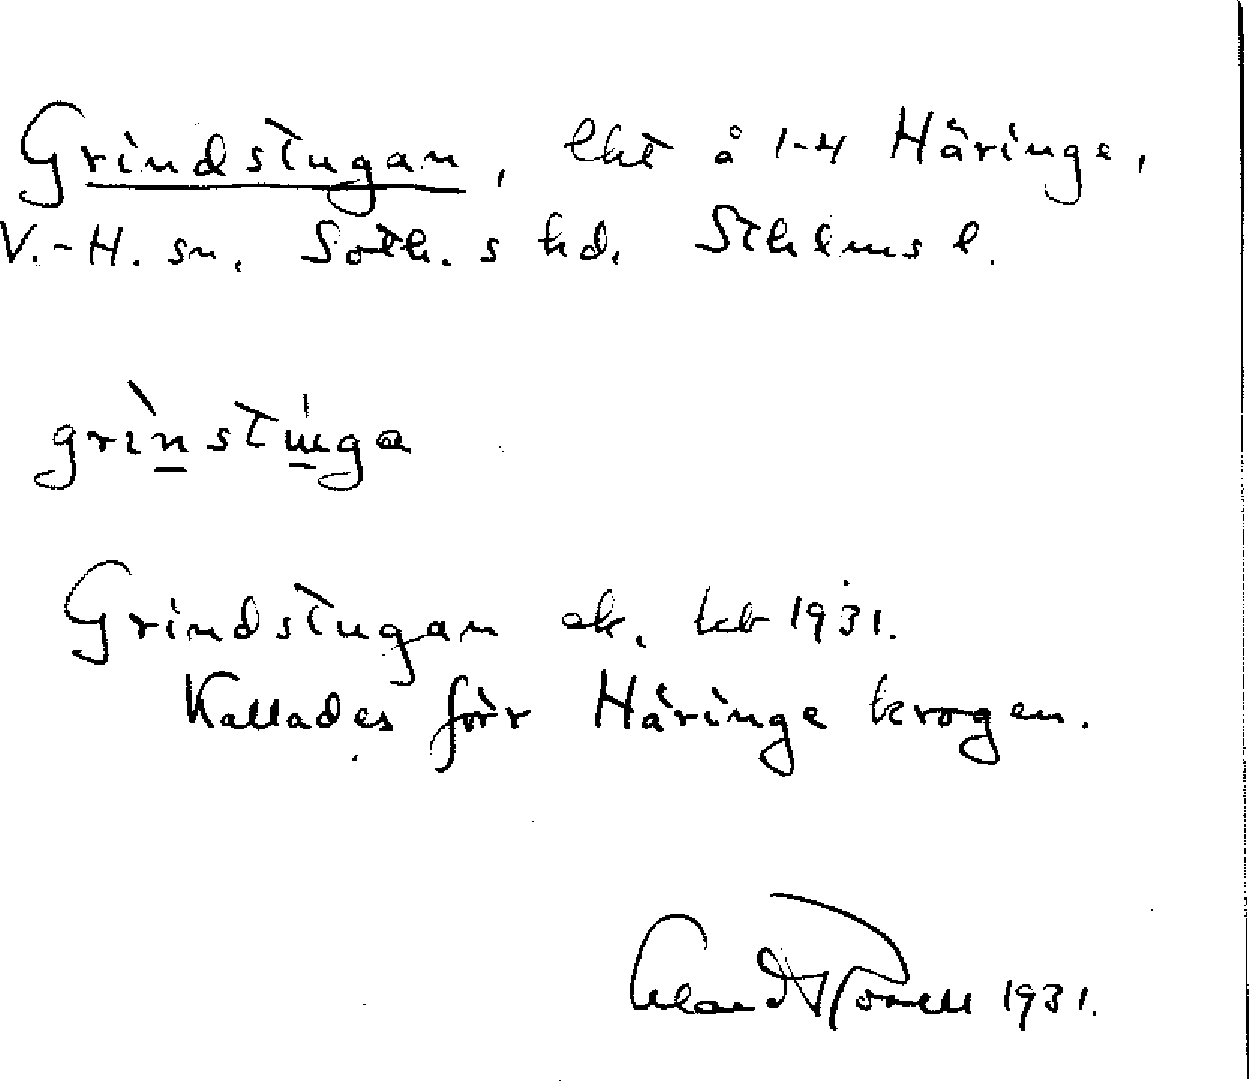 Grindstugan, lht å 1-4 Häringe,
V.-H. sn. Soth. s hd. Sthlms l.
grìnstùga
Grindstugan ek. kb 1931.
Kallades förr Häringe krogen.
1931.